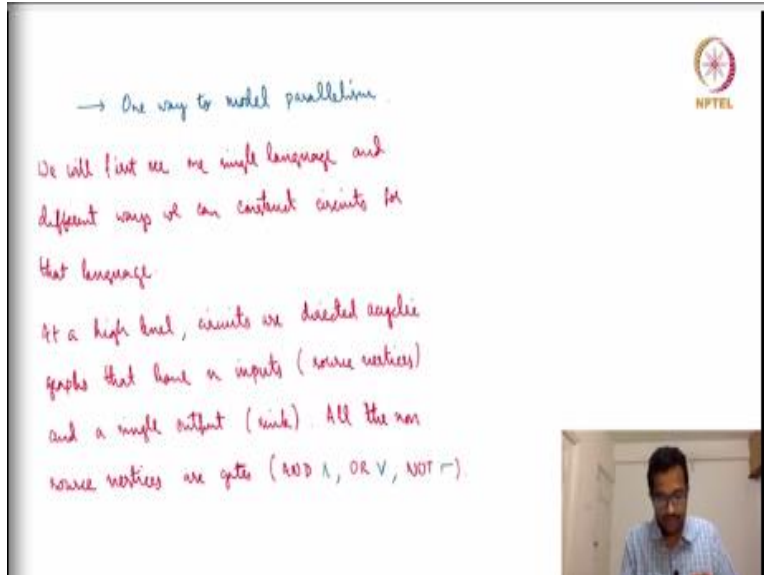 → One way to model parallelism.
NPTEL
We will first see one single language and
different ways we can construct circuits for
that language.
At a high level, circuits are directed acyclic
graphs that have n inputs (source vertices)
and a single output (sink). All the non
source vertices are gates (AND ∧, OR ∨, NOT ¬).